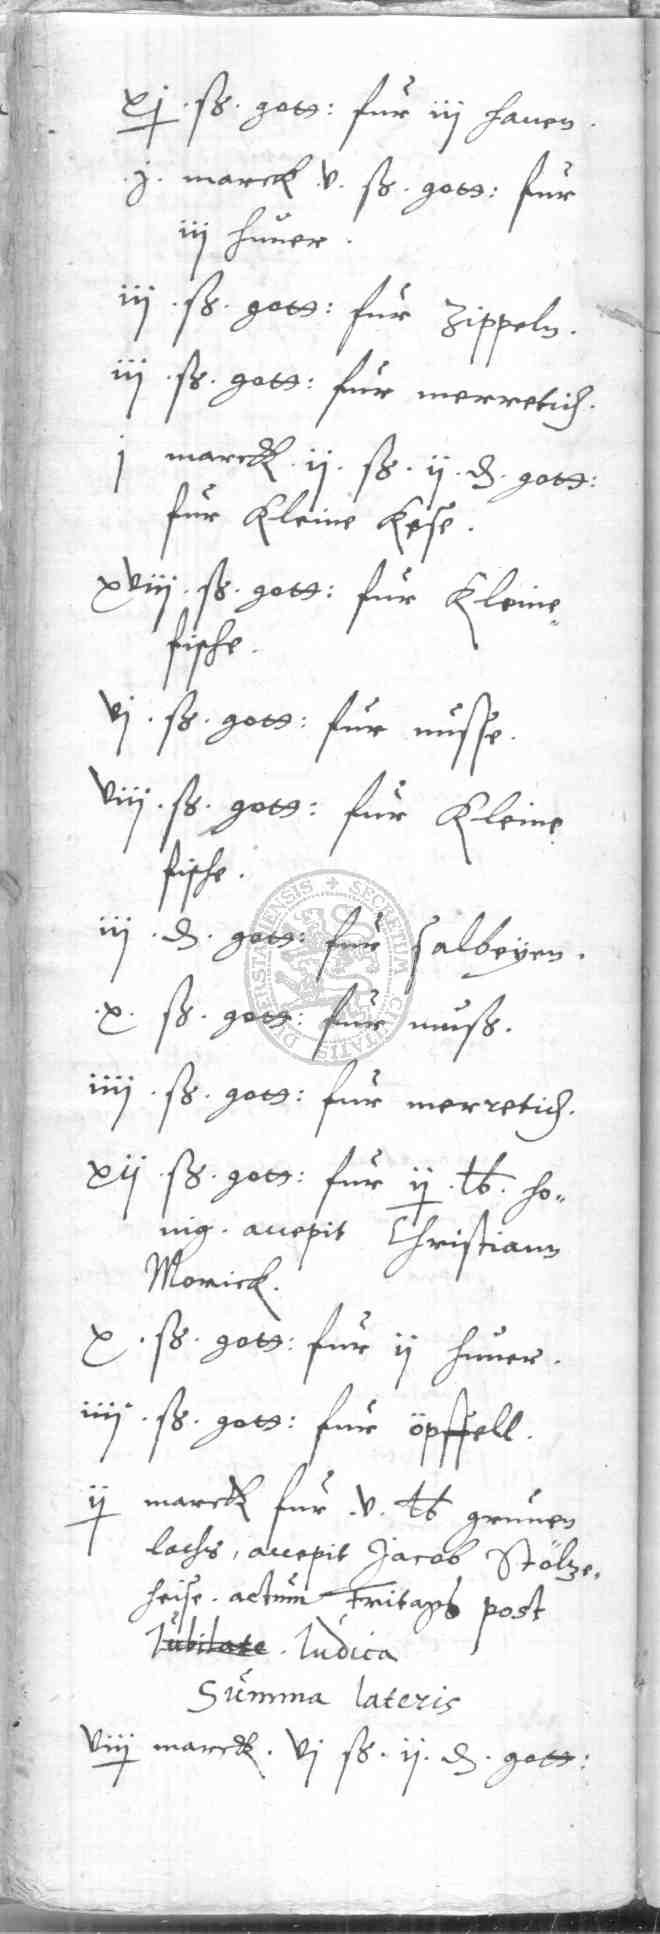 xj . ß. gott: fur iij hanen .
. j . marck .v. ß. gott: fur
iij huner .
iij . ß. gott: fur zippeln .
iij . ß. gott: fur merretich .
j marck . ij . ß. ij . d. gott:
fur Kleine Kese .
xviij . ß. gott: fur Kleine
fische .
vj . ß. gott: fur nusse .
viij . ß. gott: fur Kleine
fische .
iij . d. gott: fur salbeyen .
. x . ß. gott: fur muß .
iiij . ß. gott: fur merretich .
xij . ß. gott: fur ij . lb . ho=
nig . accepit Christiann
Morick .
x . ß. gott: fur ij huner .
iiij . ß. gott: fur öpffell .
ij marck fur .v. lb grunen
lachs , accepit Jacob Stöltze=
heise . actum Fritags post
Jubilate . Judica
Summa lateris
viij marck . vj ß. ij . d. gott:
SECRETUM CIVITATIS